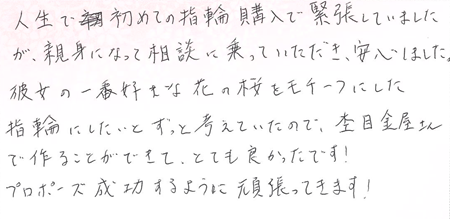 人生で初めての指輪購入で緊張していました
が、親身になって相談に乗っていただき、安心しました。
彼女の一番好きな花の桜をモチーフにした
指輪にしたいとずっと考えていたので、杢目金屋さん
で作ることができて、とても良かったです！
プロポーズ成功するように頑張ってきます！